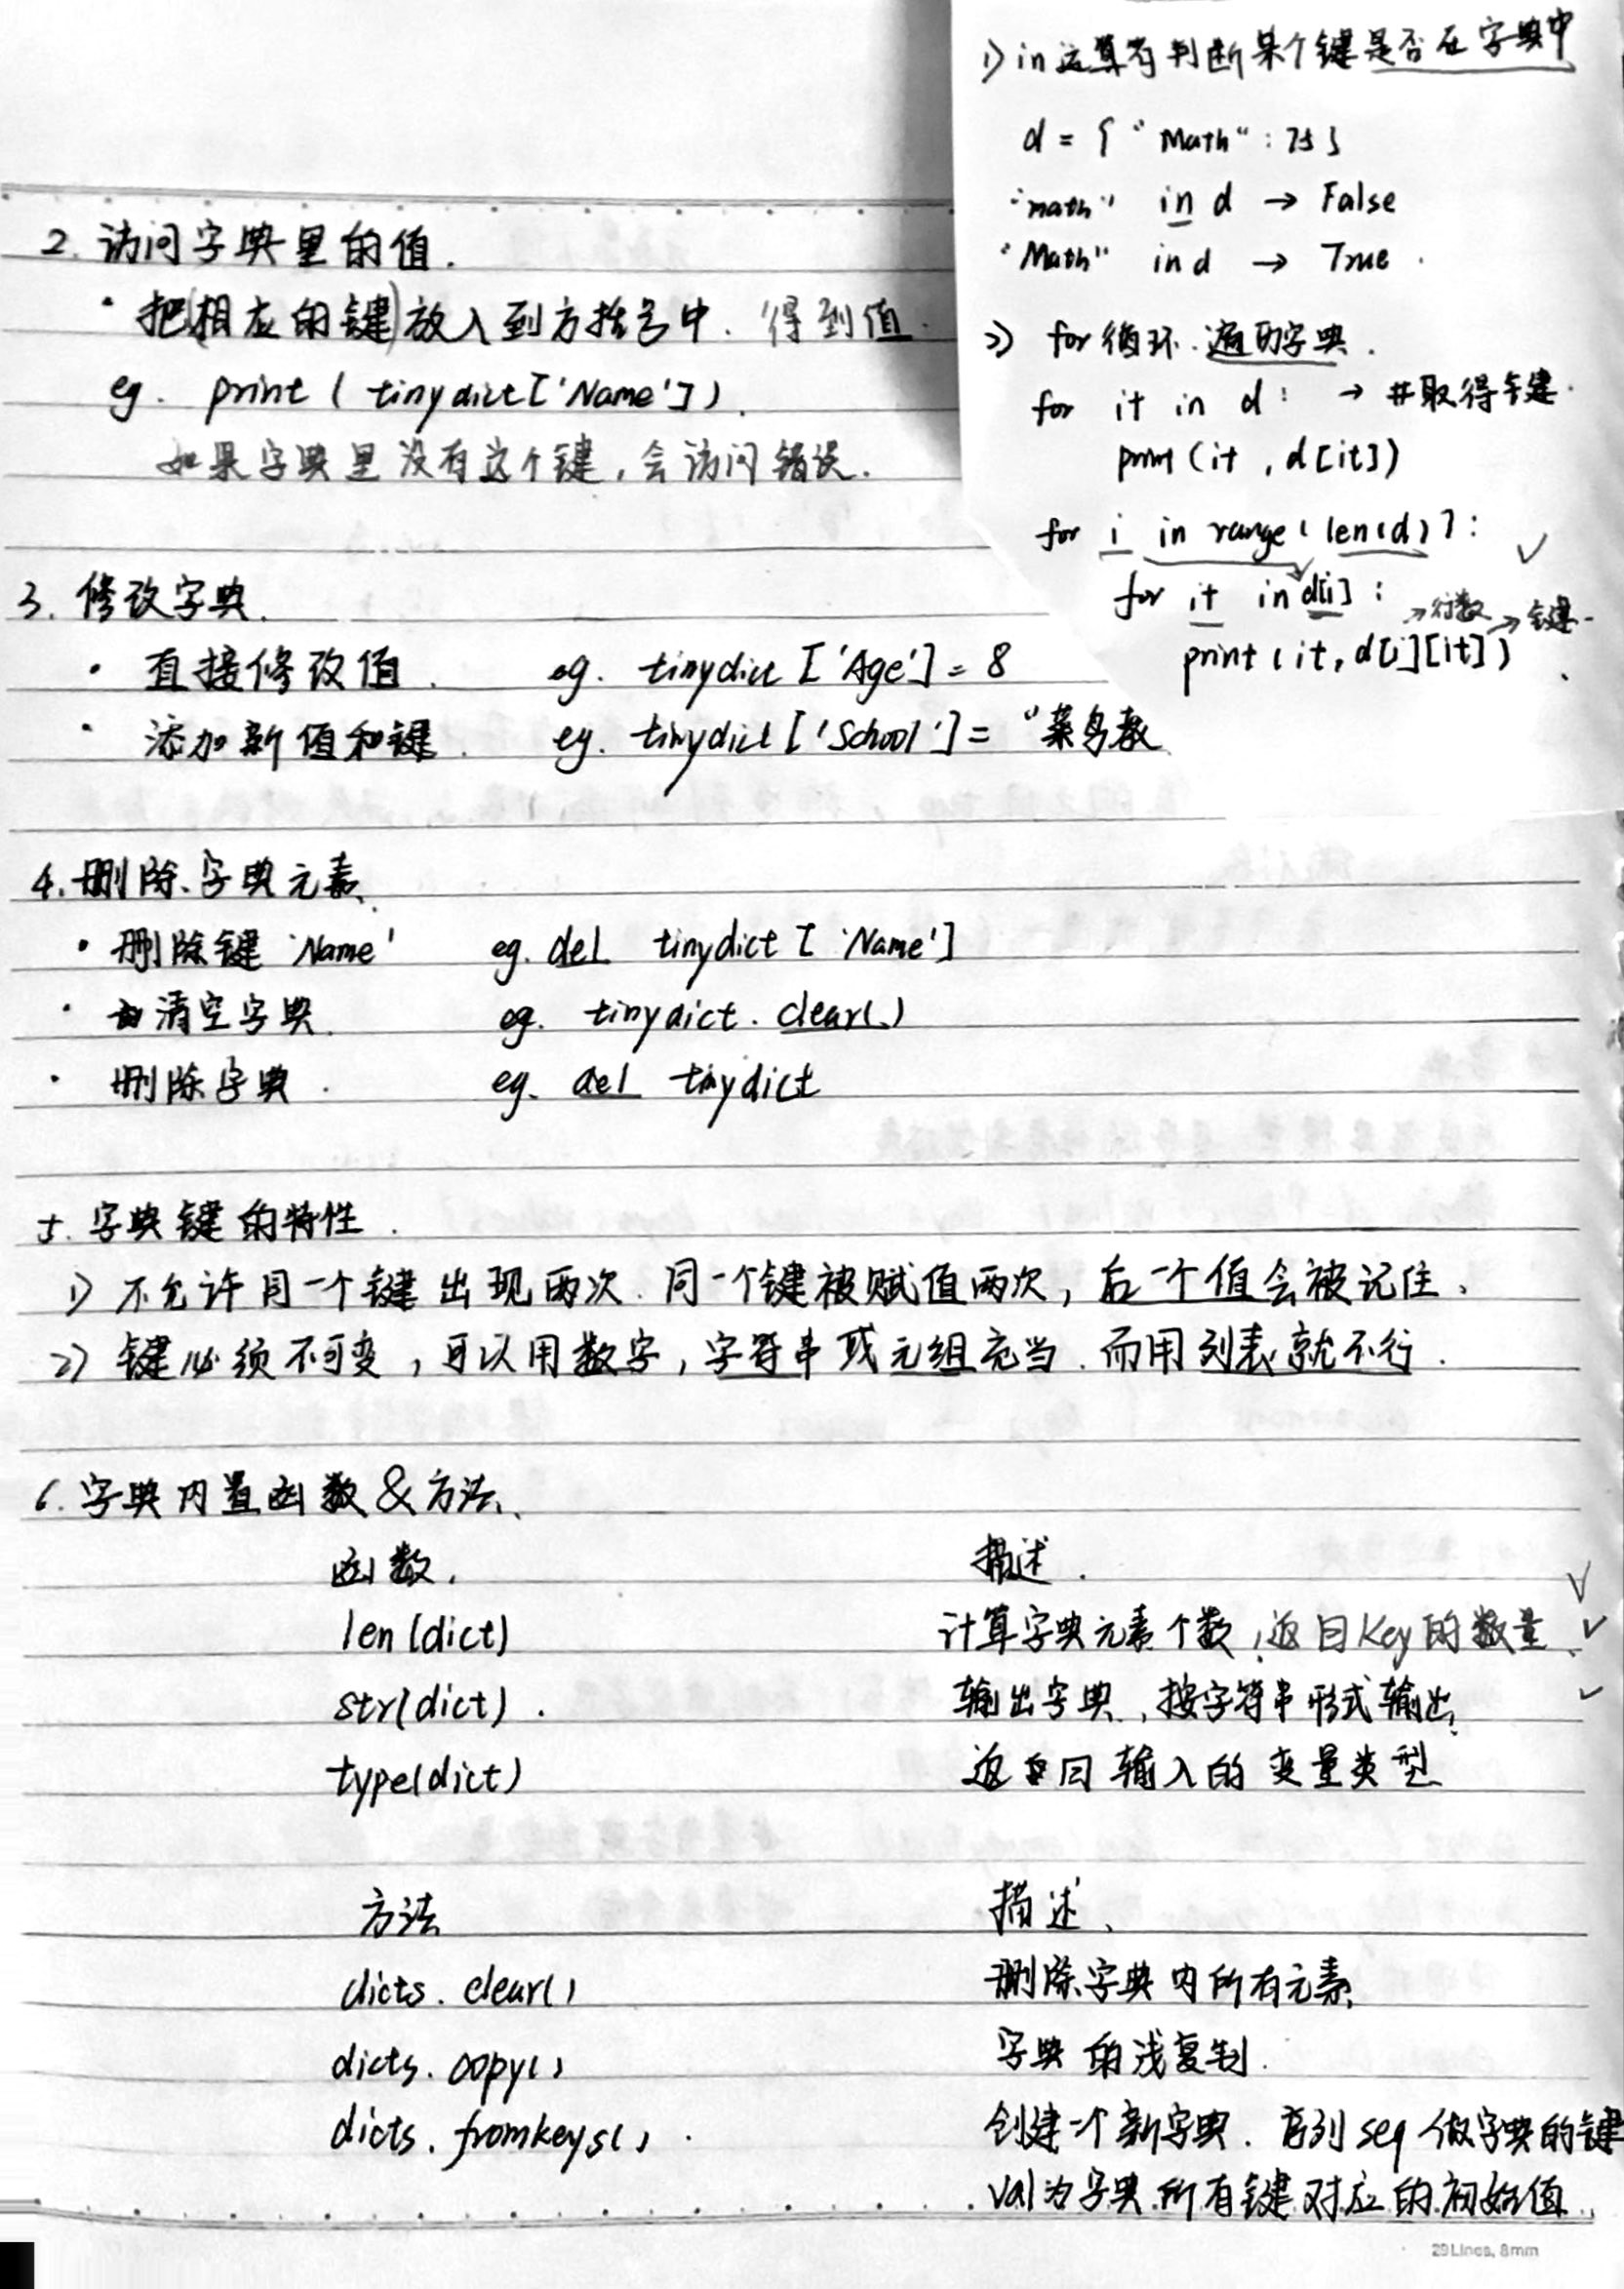 2. 访问字典里的值.
· 把(相应的键)放入到方括号中. 得到值.
eg. print ( tinydict['Name']).
如果字典里没有这个键, 会访问错误.
3. 修改字典.
· 直接修改值. eg. tinydict ['Age'] = 8
· 添加新值和键. eg. tinydict ['School'] = "菜鸟教
4. 删除字典元素
· 删除键 'Name' eg. del tinydict ['Name']
· 清空字典. eg. tinydict. clear()
· 删除字典. eg. del tinydict
5. 字典键的特性.
1) 不允许同一个键出现两次. 同一个键被赋值两次, 后一个值会被记住.
2) 键必须不可变, 可以用数字, 字符串或元组充当. 而用列表就不行.
6. 字典内置函数&方法.
函数. 描述.
len (dict) 计算字典元素个数, 返回key的数量 ✓
str(dict). 输出字典, 按字符串形式输出. ✓
type(dict) 返回输入的变量类型
方法 描述.
dicts. clear() 删除字典内所有元素.
dicts. copy() 字典的浅复制.
dicts. fromkeys(). 创建一个新字典. 序列 seq 做字典的键
val为字典所有键对应的初始值.
29Lines, 8mm
1) in 运算符判断某个键是否在字典中
d = { "Math" : 75 }
"math" in d → False
"Math" in d → True.
2) for 循环. 遍历字典.
for it in d: → #取得键.
print (it , d[it])
for i in range ( len(d) ): ✓
for it in d[i] :
→行数 →键
print (it, d[i][it])